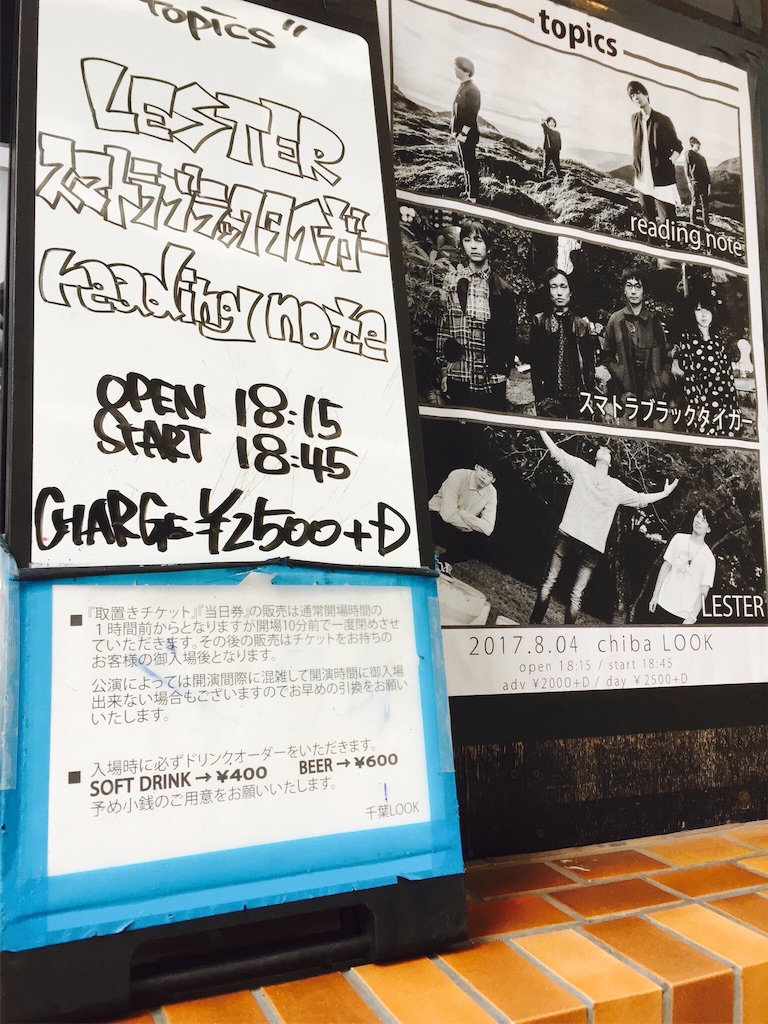 topics"
LESTER
スマトラブラックタイガー
reading note
OPEN 18:15
START 18:45
CHARGE ¥2500+D
■『取置きチケット』『当日券』の販売は通常開場時間の
１時間前からとなりますが開場10分前で一度閉めさせ
ていただきます。その後の販売はチケットをお持ちの
お客様の御入場後となります。
公演によっては開演間際に混雑して開演時間に御入場
出来ない場合もございますのでお早めの引換をお願い
いたします。
■ 入場時に必ずドリンクオーダーをいただきます。
SOFT DRINK→¥400 BEER→¥600
予め小銭のご用意をお願いいたします。
千葉LOOK
topics
reading note
スマトラブラックタイガー
LESTER
2017.8.04 chiba LOOK
open 18:15 / start 18:45
adv ¥2000+D / day ¥2500+D